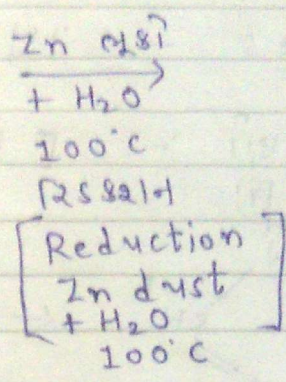 Zn ભૂકી
+ H₂O
100°C
રિડક્શન
[Reduction
Zn dust
+ H₂O]
100°C